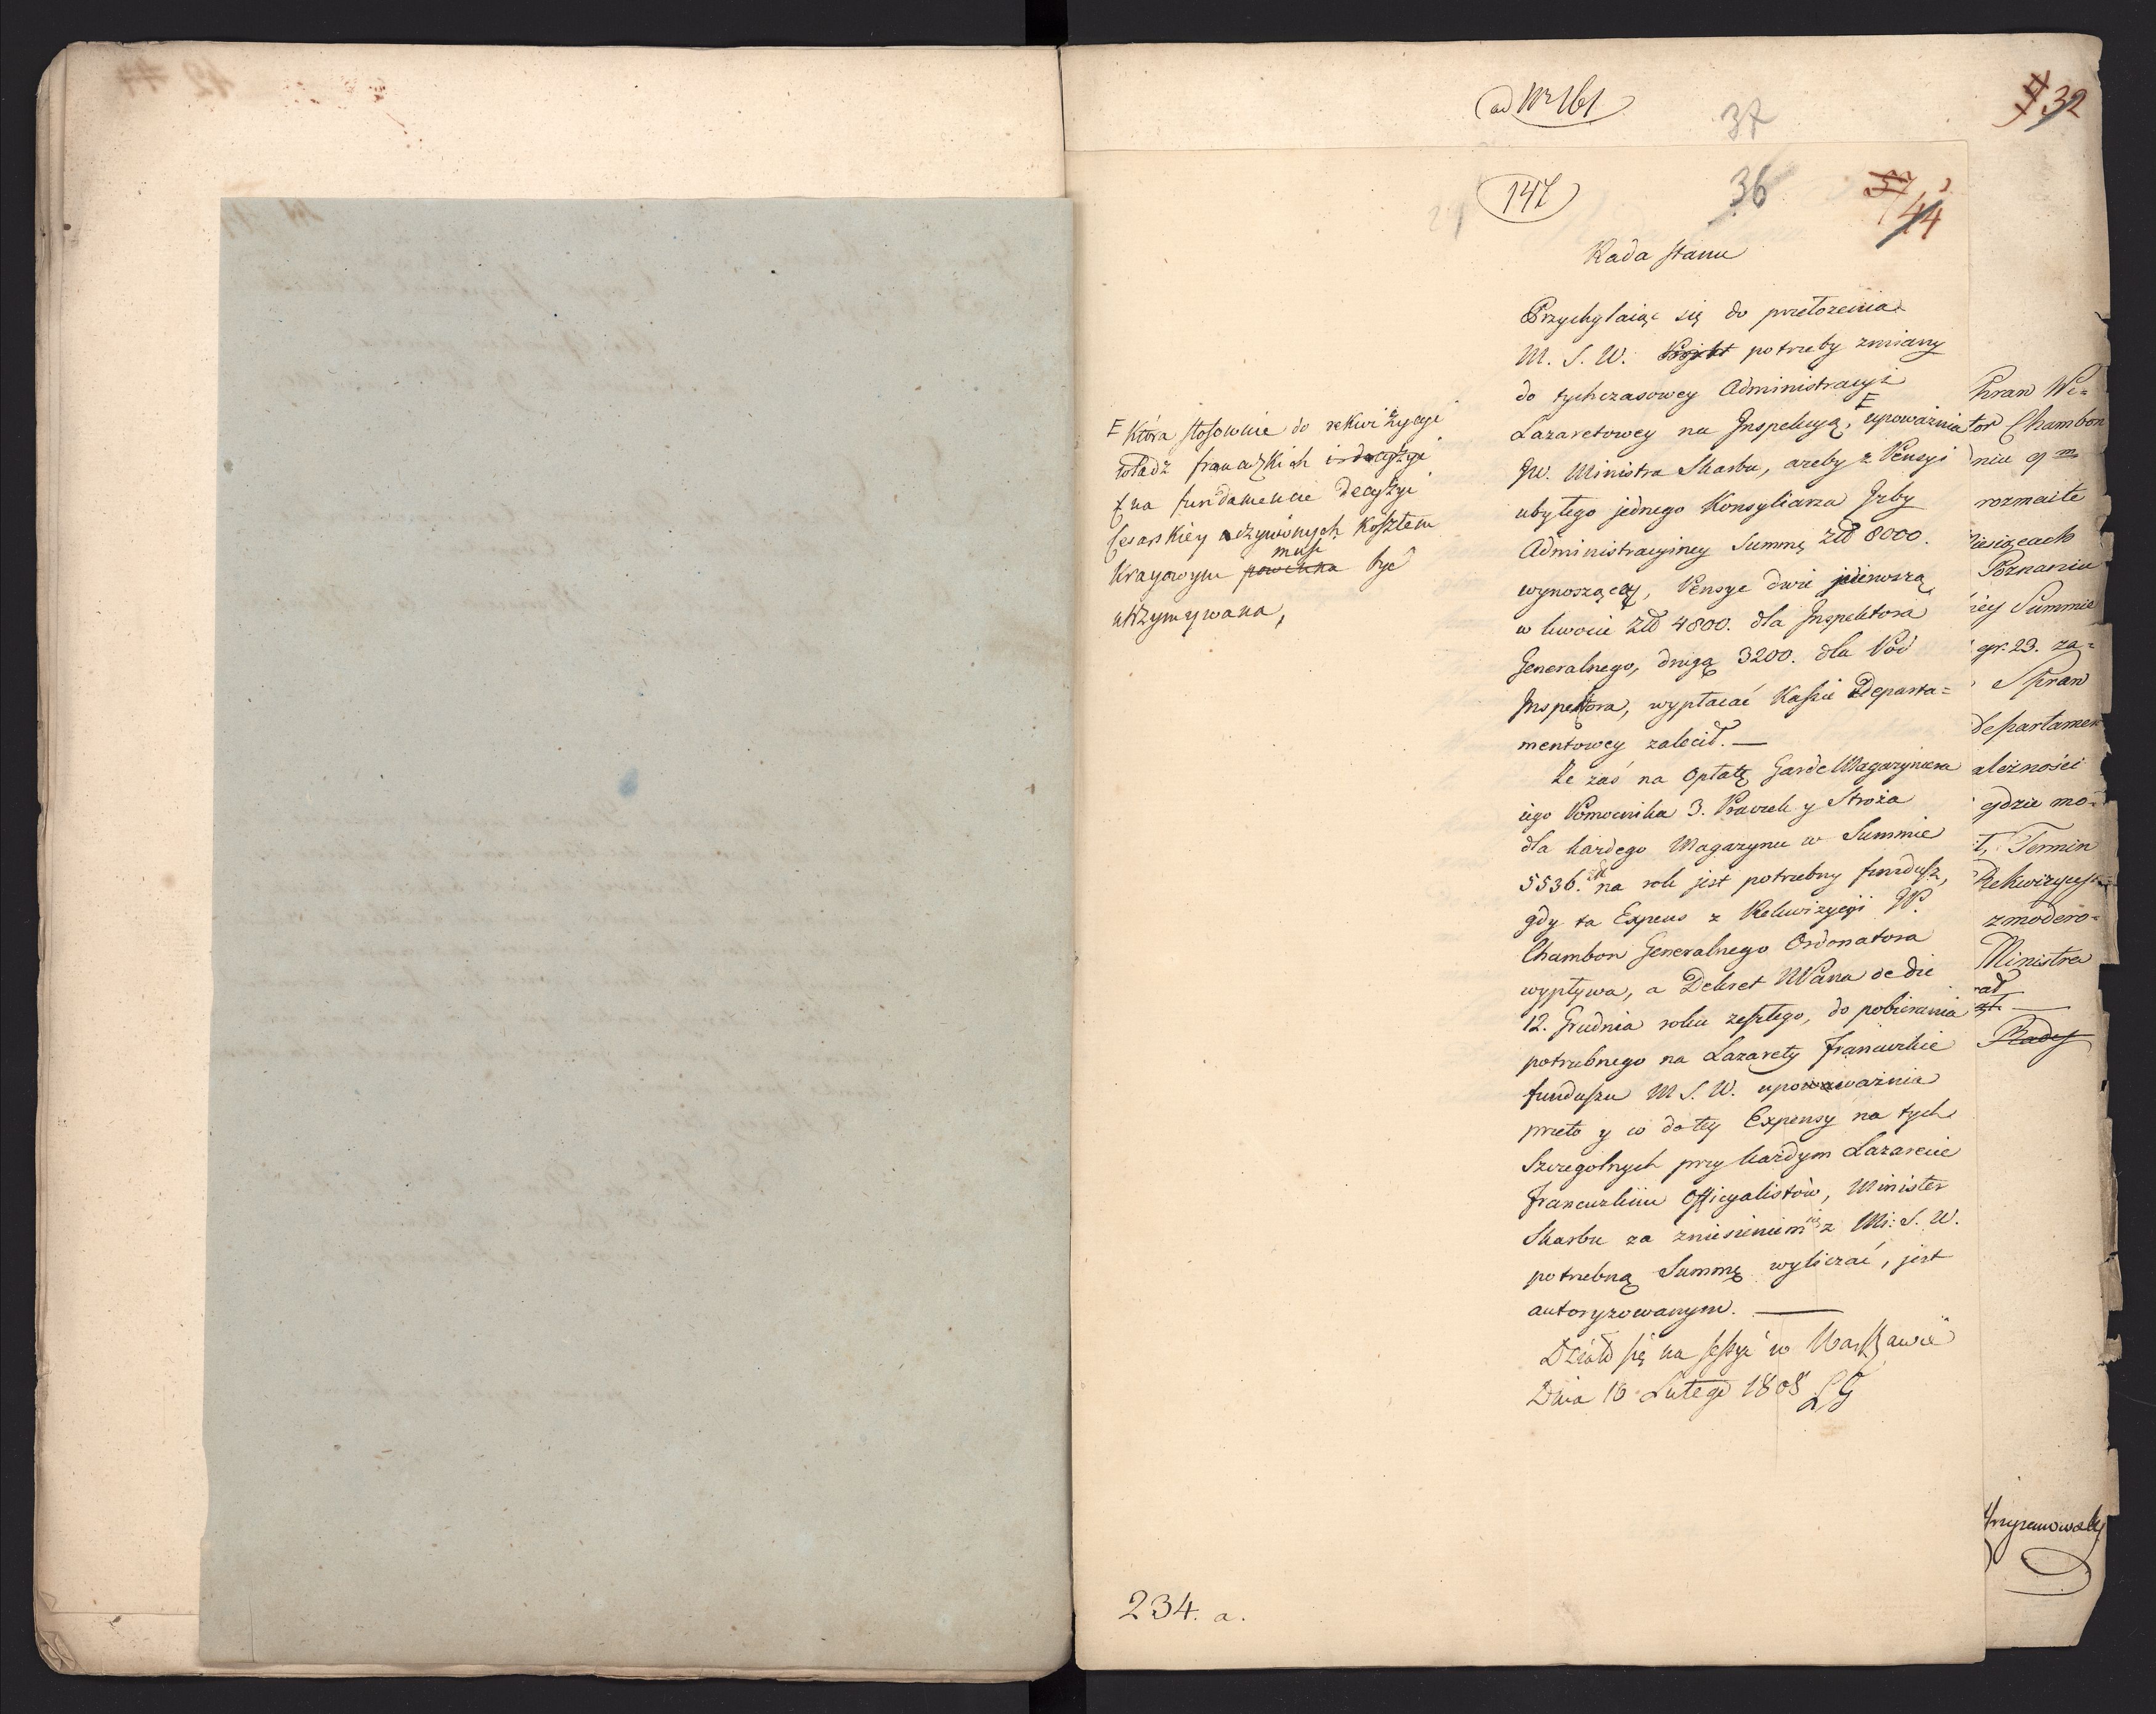 ad Nr 161
37
32
147
36
44
Rada Stanu
Przychylaiąc się do przełożenia
M. S. W. potrzeby zmiany
do tychczasowey Administracyi
Lazaretowey na Inspekcyą, F upoważnia
JW. Ministra Skarbu, ażeby z Pensyi
ubyłego jednego Konsyliarza Izby
Administracyiney Summę Złł 8000.
wynoszącey, Pensye dwie pierwszą
w kwocie Złł 4800. dla Inspektora
Generalnego, drugą 3200. dla Pod
Inspektora, wypłacać Kassie Departa=
mentowey zalecił. —
Że zaś na Opłatę Garde Magazyniera
iego Pomocnika 3. Praczek y Stroża
dla każdego Magazynu w Summie
5536. Złł na rok jest potrzebny fundusz,
gdy ta Expens z Rekwizycyi JP.
Chambon Generalnego Ordonatora
wypływa, a Dekret NPana de die
12. Grudnia roku zeszłego, do pobierania
potrzebnego na Lazarety francuzkie
funduszu M S. W. upoważnia
przeto y w do tey Expensy na tych
Szczegolnych przy każdym Lazarecie
francuzkim Officyalistów, Minister
Skarbu za zniesieniem się z Mi: S. W.
potrzebną Summę wyliczać, jest
autoryzowanym. —
Działo się na sessyi w Warszawie
Dnia 16 Lutego 1808 LG
F Która stosownie do rekwizycyi
władz francuzkich i decyzyi
na fundamencie decyzyi
Cesarskiey a żywionych kosztem
Krayowym powinna musi być
utrzymywana,
234. a.
Pran Wi=
tor Chambon
niu 9 m
rozmaite
iesiącach
Poznaniu
iey Summie
gr. 23. za=
Spraw
Departamen
ależności
gdzie mo=
t, Termin
Rekwizycy
zmodero=
Ministra
Rady